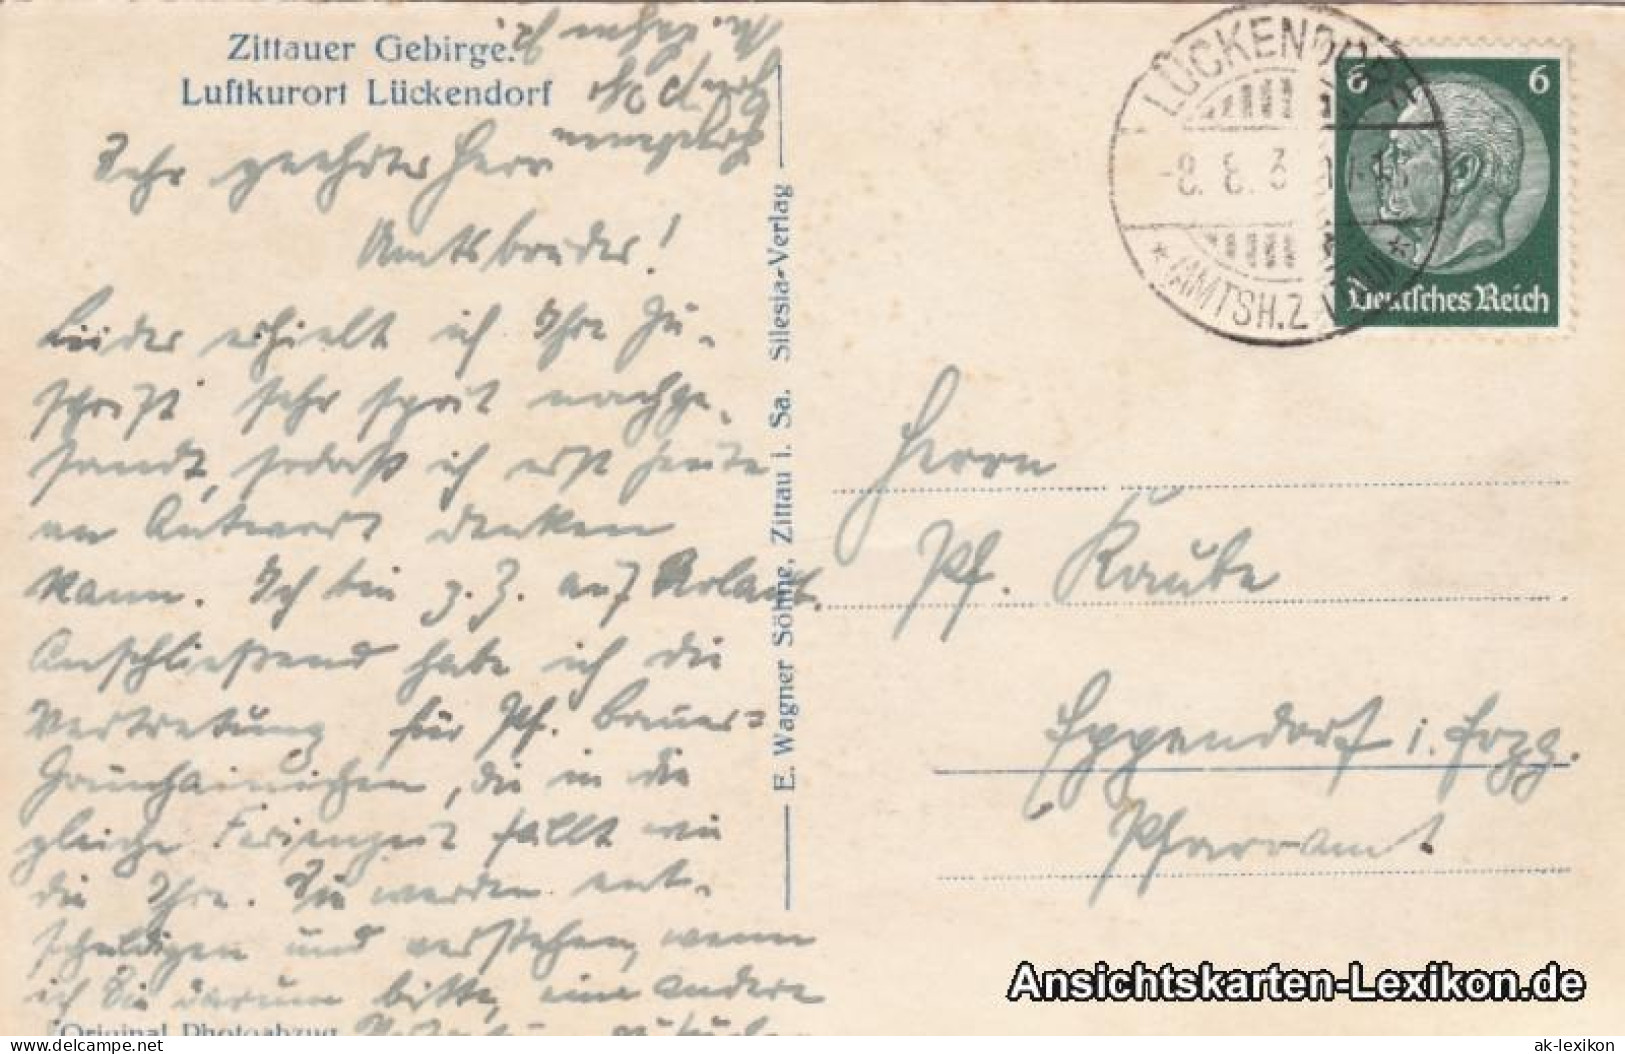 Zittauer Gebirge.
Luftkurort Lückendorf
Sehr geehrter Herr
Amtsbruder!
Leider erhielt ich Ihre Zu-
schrift sehr spät nachge-
sandt, sodaß ich erst heute
an Antwort denken
kann. Ich bin z. Z. auf Urlaub.
Anschließend habe ich die
Vertretung für Pf.
die in die
gleiche Ferienzeit fällt wie
die Ihre. Sie werden ent-
schuldigen und verstehen, wenn
ich Sie darum bitte, eine andere
Vertretung zu suchen
Original Photoabzug
E. Wagner Söhne, Zittau i. Sa. Silesia-Verlag
LÜCKENDORF
-8. 8. 3
* (AMTSH. Z *
6 6
Deutsches Reich
Herrn
Pf. Kaube
Eppendorf i. Erzg.
Pfarramt
Ansichtskarten-Lexikon.de
delcampe.net
ak-lexikon